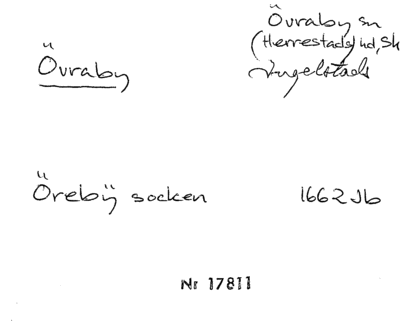 Övraby sn
(Herrestads) hd, Sk
Övraby
Ingelstads
Örebÿ socken 1662 Jb
Nr 17811